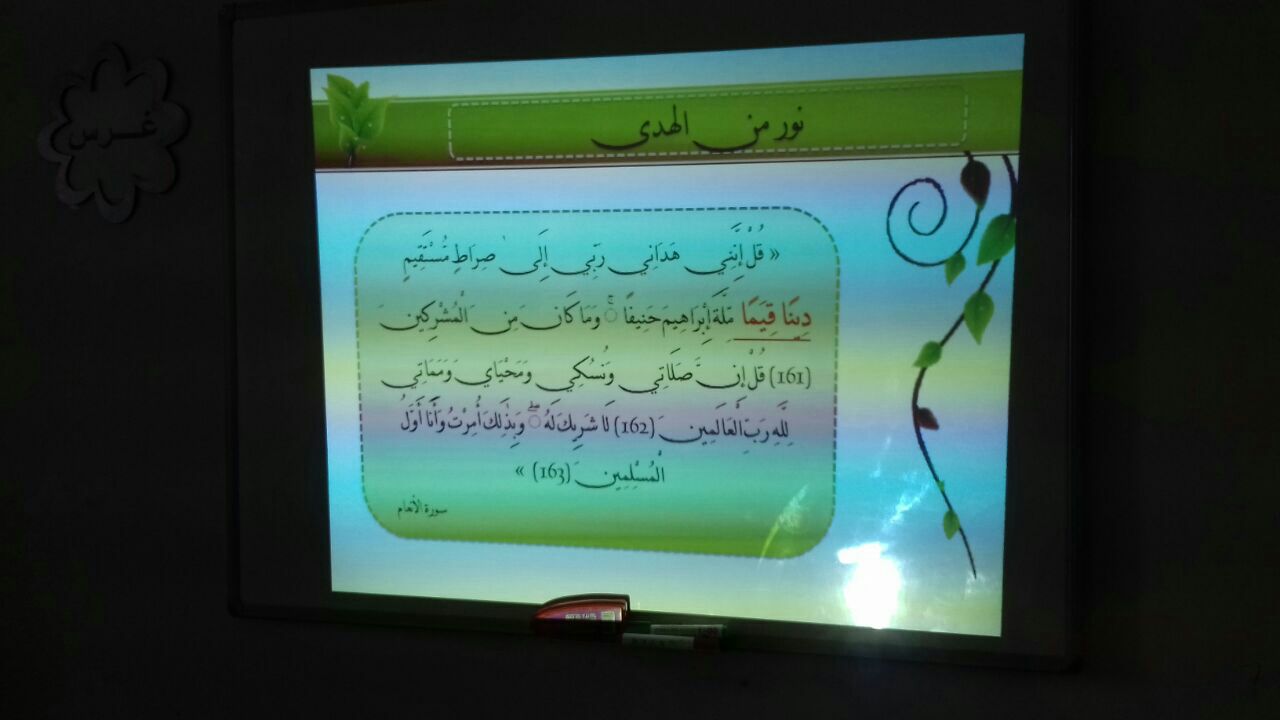 غرس
نور من الهدى
« قُلْ إِنَّنِي هَدَانِي رَبِّي إِلَىٰ صِرَاطٍ مُّسْتَقِيمٍ
دِينًا قِيَمًا مِّلَّةَ إِبْرَاهِيمَ حَنِيفًا ۚ وَمَا كَانَ مِنَ الْمُشْرِكِينَ
(161) قُلْ إِنَّ صَلَاتِي وَنُسُكِي وَمَحْيَايَ وَمَمَاتِي
لِلَّهِ رَبِّ الْعَالَمِينَ (162) لَا شَرِيكَ لَهُ ۖ وَبِذَٰلِكَ أُمِرْتُ وَأَنَا أَوَّلُ
الْمُسْلِمِينَ (163) »
سورة الأنعام